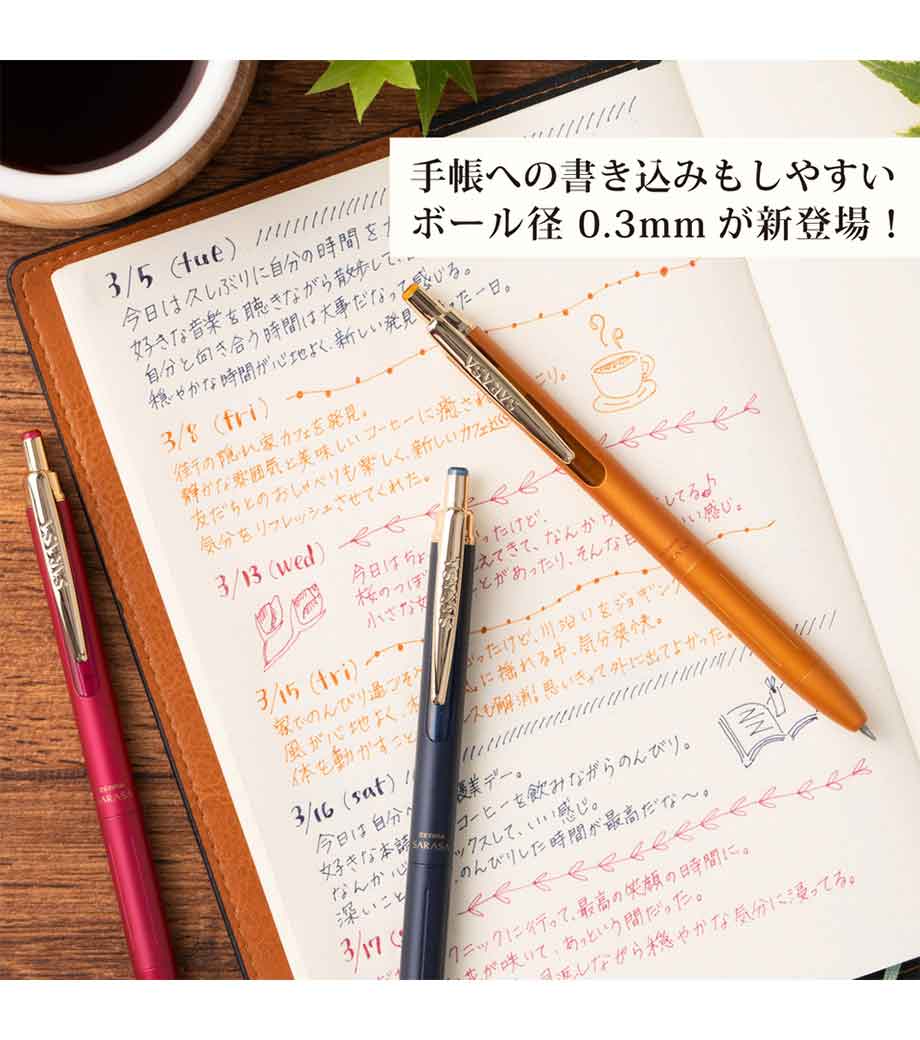 手帳への書き込みもしやすい
ボール径 0.3mm が新登場！
3/5 (tue)
今日は久しぶりに自分の時間を
好きな音楽を聴きながら散歩して、
自分と向き合う時間は大事だなって感じる。
穏やかな時間が心地よく、新しい発見 った一日。
3/8 (fri)
街の隠れ家カフェを発見。
静かな雰囲気と美味しいコーヒーに癒され り。
友だちとのおしゃべりも楽しく、新しいカフェ
気分をリフレッシュさせてくれた。
3/13 (wed)
今日はちょ ったけど、
桜のつぼ えてきて、なんか してる♪
小さな とがあったり、そんな日 いい感じ。
3/15 (fri)
家でのんびり過ごそ かったけど、川沿いをジョギング
風が心地よく、 に揺れる中、気分爽快。
体を動かすこと スも解消！思いきって外に出てよかった。
3/16 (sat)
今日は自分 褒美デー。
好きな本読 コーヒーを飲みながらのんびり。
なんか心 ックスして、いい感じ。
深いこと のんびりした時間が最高だな〜。
3/17
クニックに行って、最高の笑顔の時間に。
が咲いて、あっという間だった。
しながら穏やかな気分に浸ってる。
SARASA
ZEBRA
SARASA
ZEBRA
SARASA